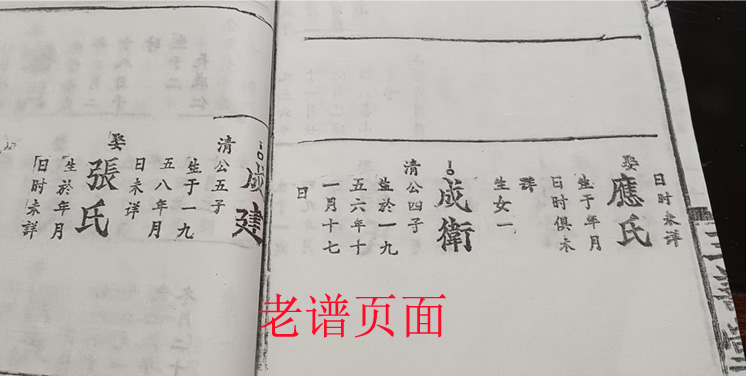 日时未詳
娶應氏
生于年月
日时俱未
詳
生女一
成衛
清公四子
生於一九
五六年十
一月十七
日
成建
清公五子
生于一九
五八年月
日未详
娶張氏
生於年月
日时未詳
老谱页面